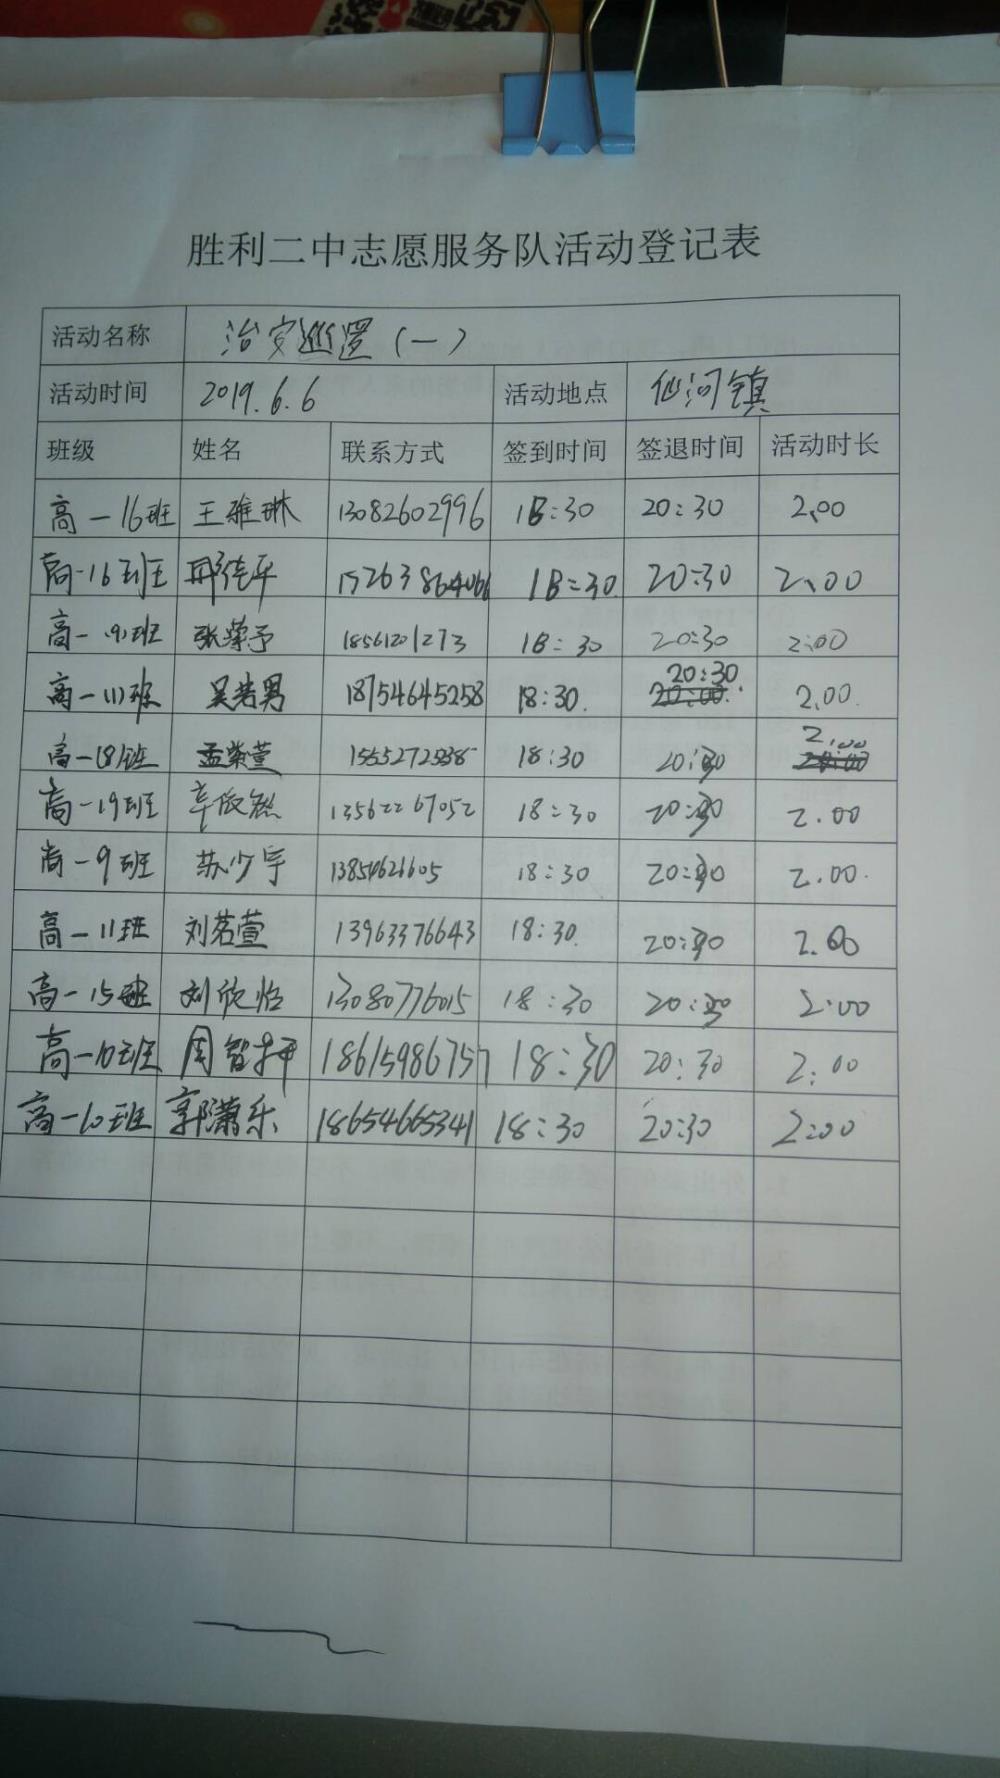 胜利二中志愿服务队活动登记表
活动名称 治安巡逻（一）
活动时间 2019.6.6 活动地点 仙河镇
班级 姓名 联系方式 签到时间 签退时间 活动时长
高一16班 王雅琳 13082602996 18:30 20:30 2.00
高一16班 邢德平 15263864066 18:30 20:30 2.00
高一9班 张荣予 18561201273 18:30 20:30 2:00
高一11班 吴若男 18754645258 18:30 20:30 2.00
高一18班 孟紫萱 18:30 20:30 2.00
高一19班 13562267052 18:30 20:30 2.00
高一9班 苏少宇 13854621605 18:30 20:30 2.00
高一11班 刘茗萱 13963376643 18:30 20:30 2.00
高一15班 刘欣怡 13080776015 18:30 20:30 2:00
高一10班 周智 18615986757 18:30 20:30 2:00
高一10班 郭潇乐 18654665341 18:30 20:30 2:00